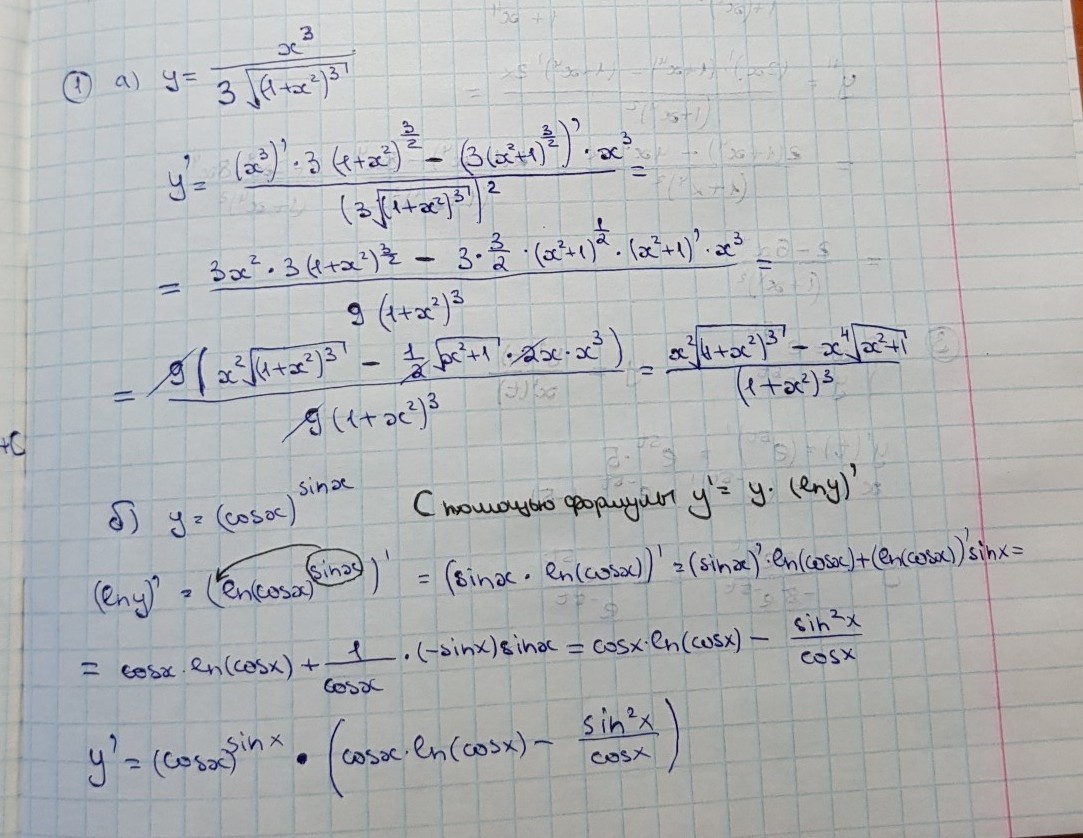 ① а) y = x³ / (3√((1+x²)³))
y' = ((x³)' · 3(1+x²)^(3/2) − (3(x²+1)^(3/2))' · x³) / (3√((1+x²)³))² =
= (3x² · 3(1+x²)^(3/2) − 3 · 3/2 · (x²+1)^(1/2) · (x²+1)' · x³) / (9(1+x²)³) =
= 9(x²√((1+x²)³) − 1/2 √(x²+1) · 2x · x³) / (9(1+x²)³) = (x²√((1+x²)³) − x⁴√(x²+1)) / (1+x²)³
+C
б) y = (cosx)^(sinx) С помощью формулы y' = y · (lny)'
(lny)' = (ln(cosx)^(sinx))' = (sinx · ln(cosx))' = (sinx)' · ln(cosx) + (ln(cosx))' sinx =
= cosx · ln(cosx) + 1/cosx · (−sinx) sinx = cosx · ln(cosx) − sin²x/cosx
y' = (cosx)^(sinx) · (cosx · ln(cosx) − sin²x/cosx)